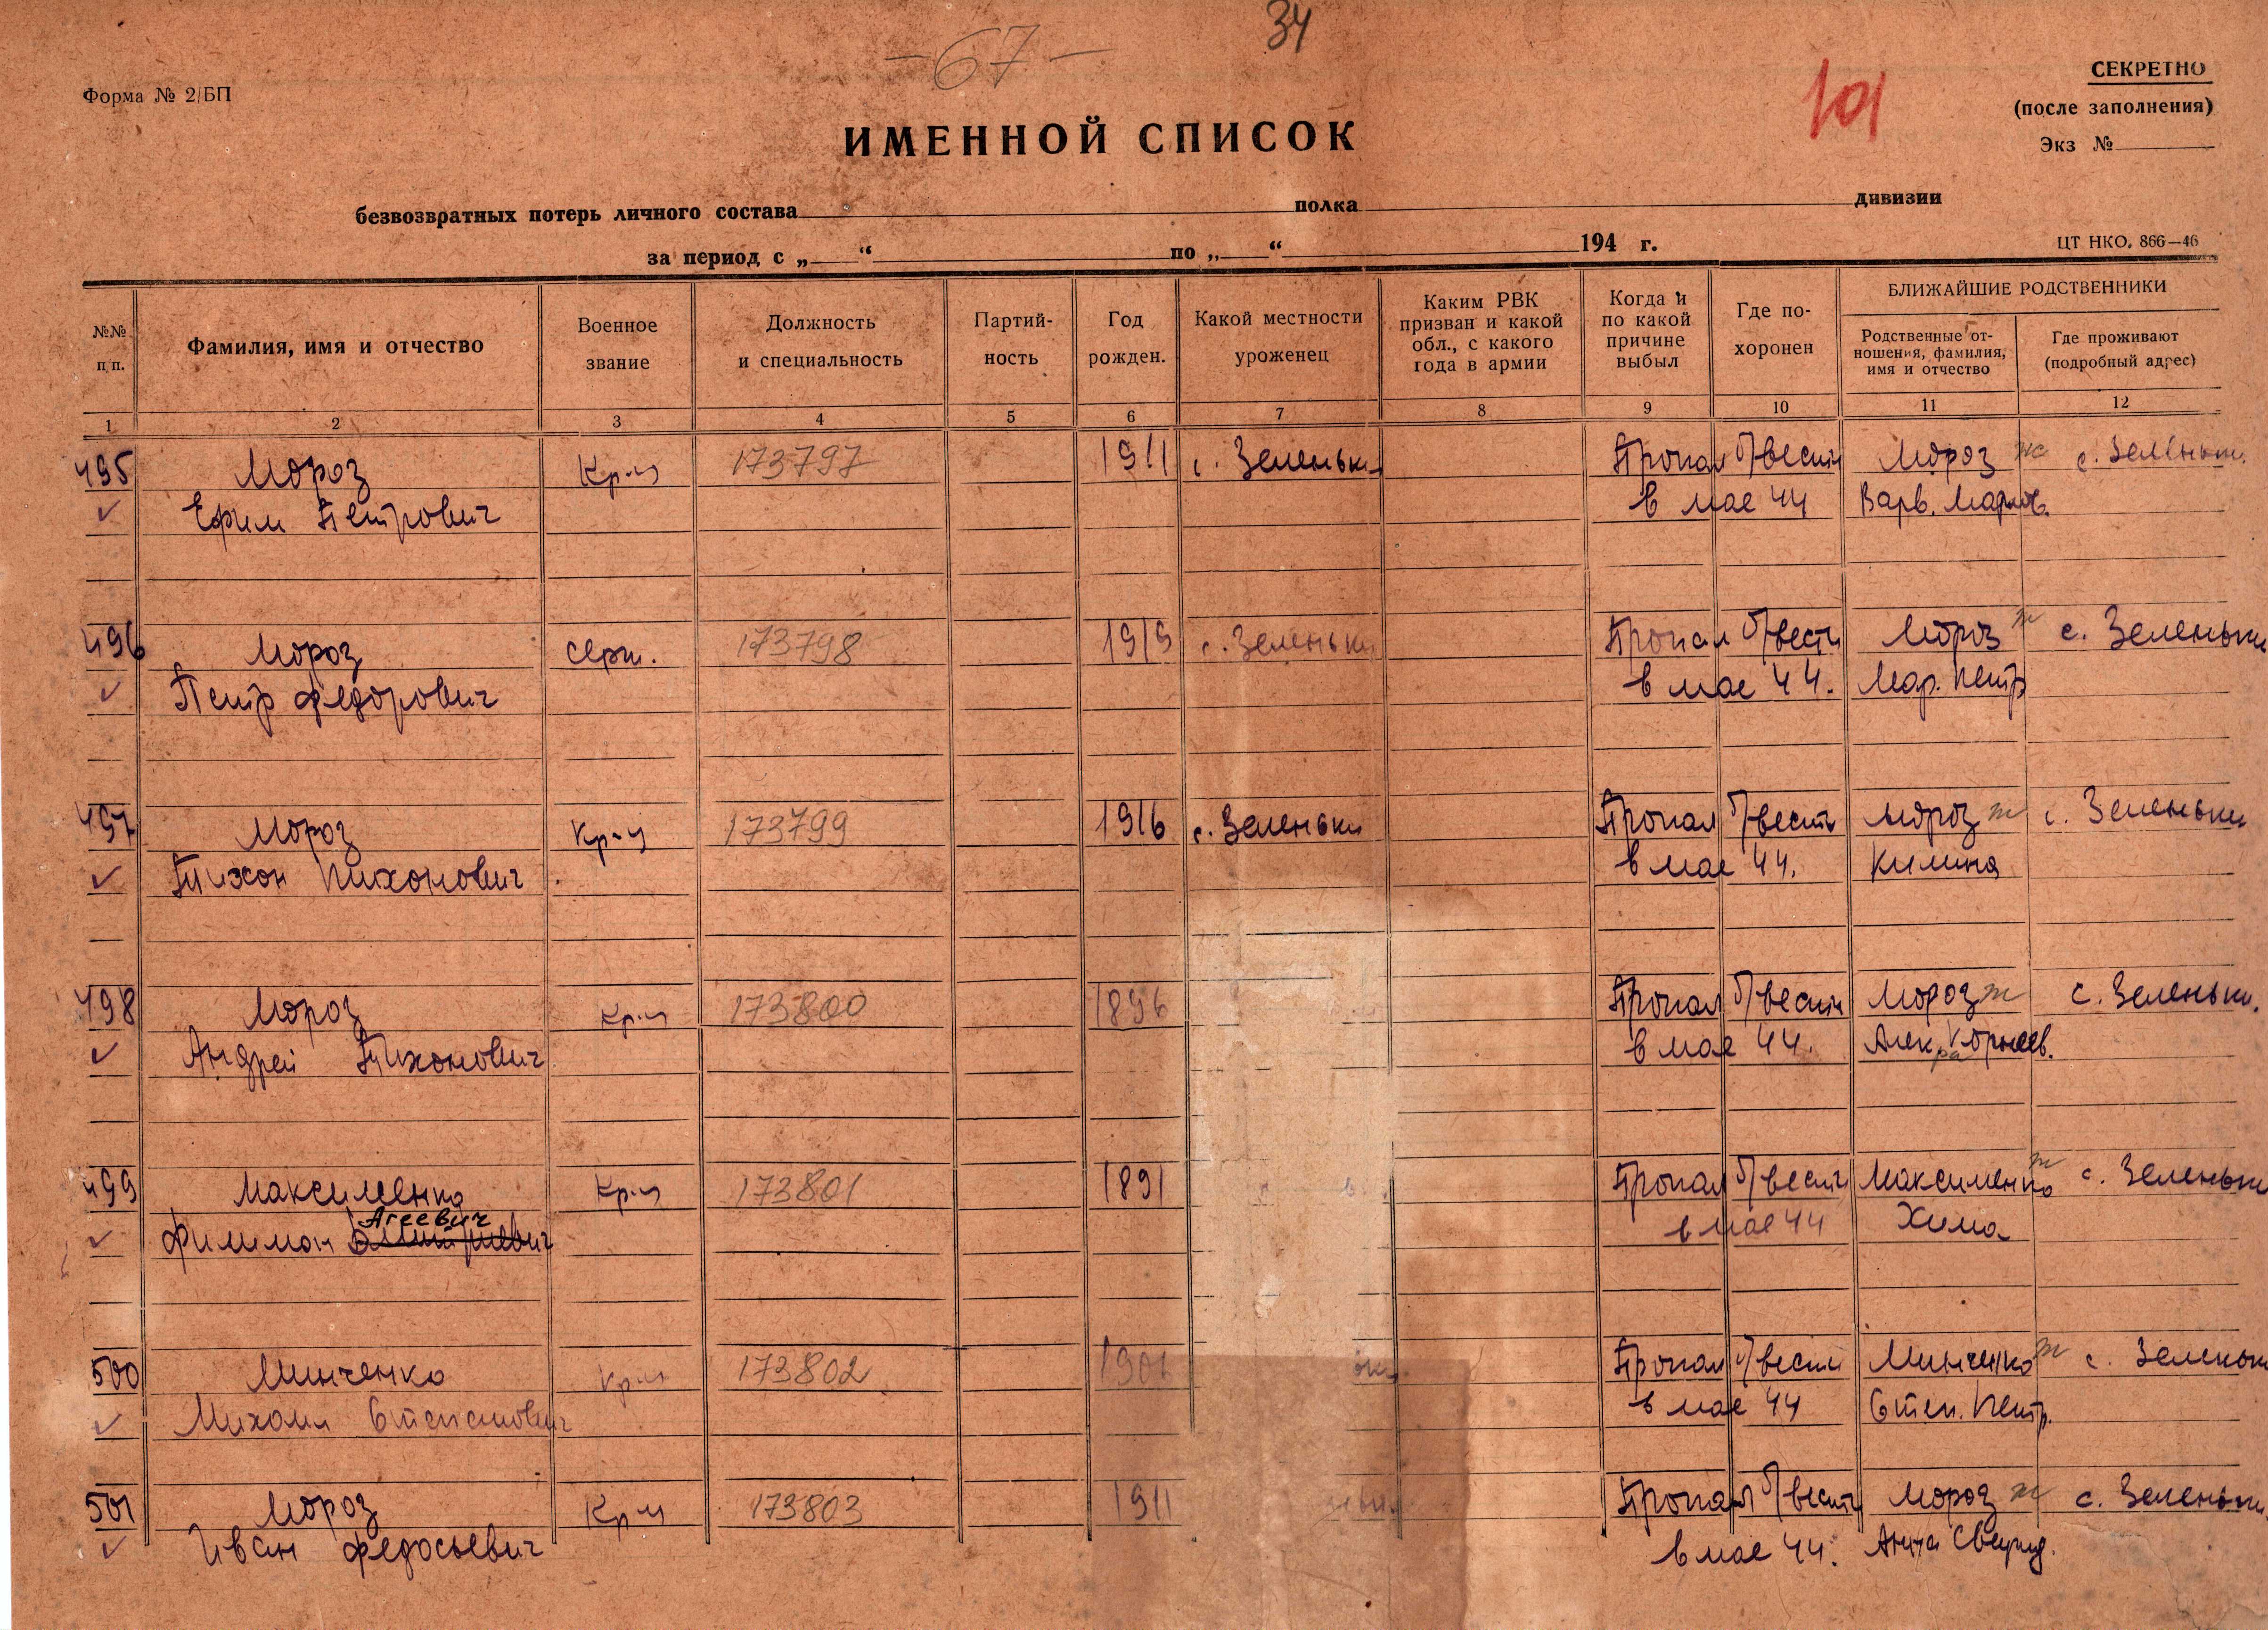 - 67 -
34
101
Форма № 2/БП
СЕКРЕТНО
(после заполнения)
Экз №
ИМЕННОЙ СПИСОК
безвозвратных потерь личного состава полка дивизии
за период с „ “ по „ “ 194 г.
ЦТ НКО. 866—46
№№ п/п.
Фамилия, имя и отчество
Военное звание
Должность и специальность
Партий- ность
Год рожден.
Какой местности уроженец
Каким РВК призван и какой обл., с какого года в армии
Когда и по какой причине выбыл
Где по- хоронен
БЛИЖАЙШИЕ РОДСТВЕННИКИ
Родственные от- ношения, фамилия, имя и отчество
Где проживают (подробный адрес)
1 2 3 4 5 6 7 8 9 10 11 12
495 Мороз Кр-ц 173797 1911 с. Зеленьки Пропал б/вести Мороз ж с. Зеленьки
Ефим Петрович в мае 44 Варв. Марков.
496 Мороз серж. 173798 1919 с. Зеленьки Пропал б/вести Мороз ж с. Зеленьки
Петр Федорович в мае 44. Мар. Петр.
497 Мороз Кр-ц 173799 1916 с. Зеленьки Пропал б/вести Мороз ж с. Зеленьки
Тихон Тихонович в мае 44. Килина
498 Мороз Кр-ц 173800 1896 Пропал б/вести Мороз ж с. Зеленьки.
Андрей Тихонович в мае 44. Алек.ра Корнеев.
499 Максименко Кр-ц 173801 1891 Пропал б/вести Максименко ж с. Зеленьки
Агеевич
Филимон Дмитриевич в мае 44 Хима
500 Минченко Кр-ц 173802 1901 Пропал б/вести Минченко ж с. Зеленьки
Михаил Степанович в мае 44 Степ. Петр.
501 Мороз Кр-ц 173803 1911 Пропал б/вести Мороз ж с. Зеленьки
Иван Федосьевич в мае 44. Анна Свирид.